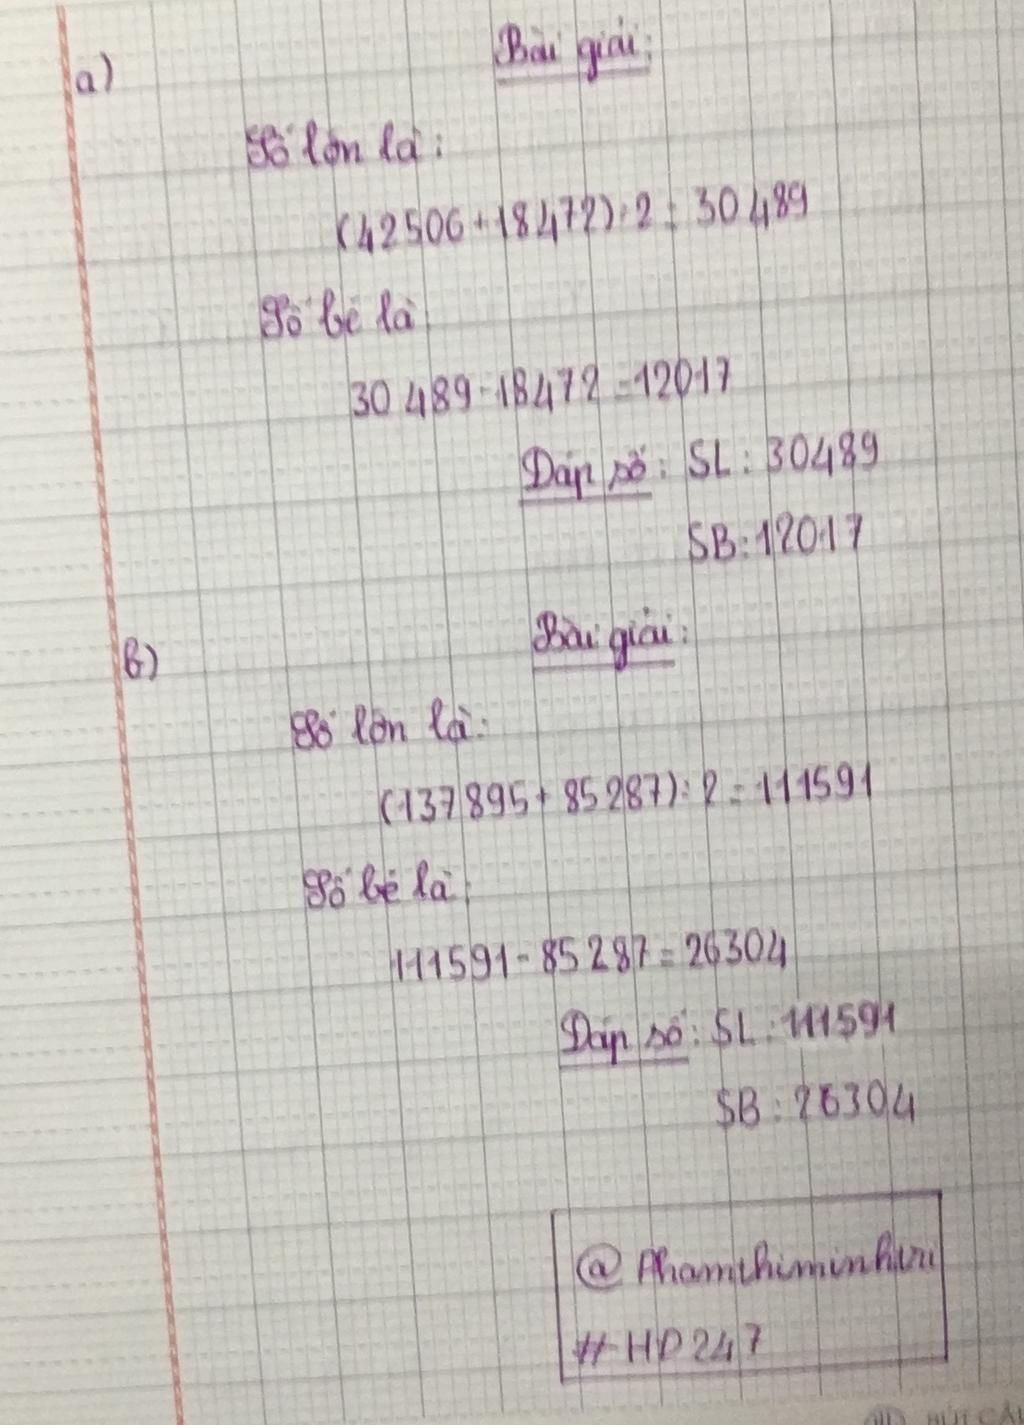 a)
Bài giải:
Số lớn là:
(42506+18472):2=30489
Số bé là
30489-18472=12017
Đáp số: SL: 30489
SB:12017
b)
Bài giải:
Số lớn là:
(137895+85287):2=111591
Số bé là:
111591-85287=26304
Đáp số: SL:111591
SB:26304
@Phamthiminhvri
#HD247